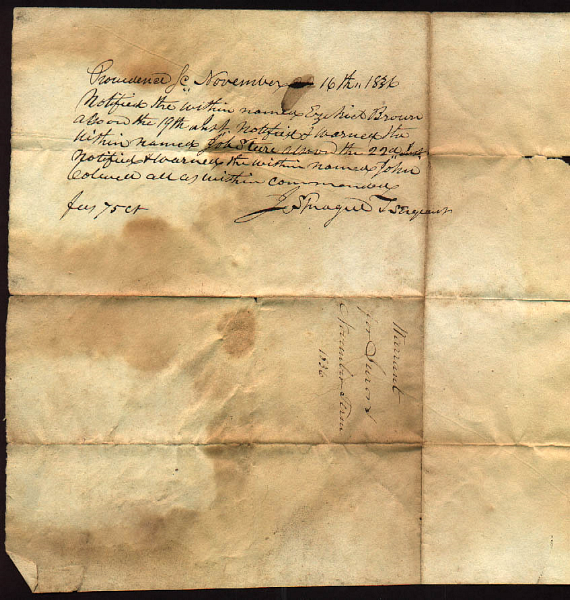 Providence Sc November 16th 1836
Notified the within named Ezekiel Brown
also on the 19th inst Notified & Warned the
within named Job Steere also on the 22d Inst
Notified & Warned the within named John
Colwell all as within commanded
fees 75 ct J Sprague T Sergeant
Warrant
for Jurors
November Term
1836